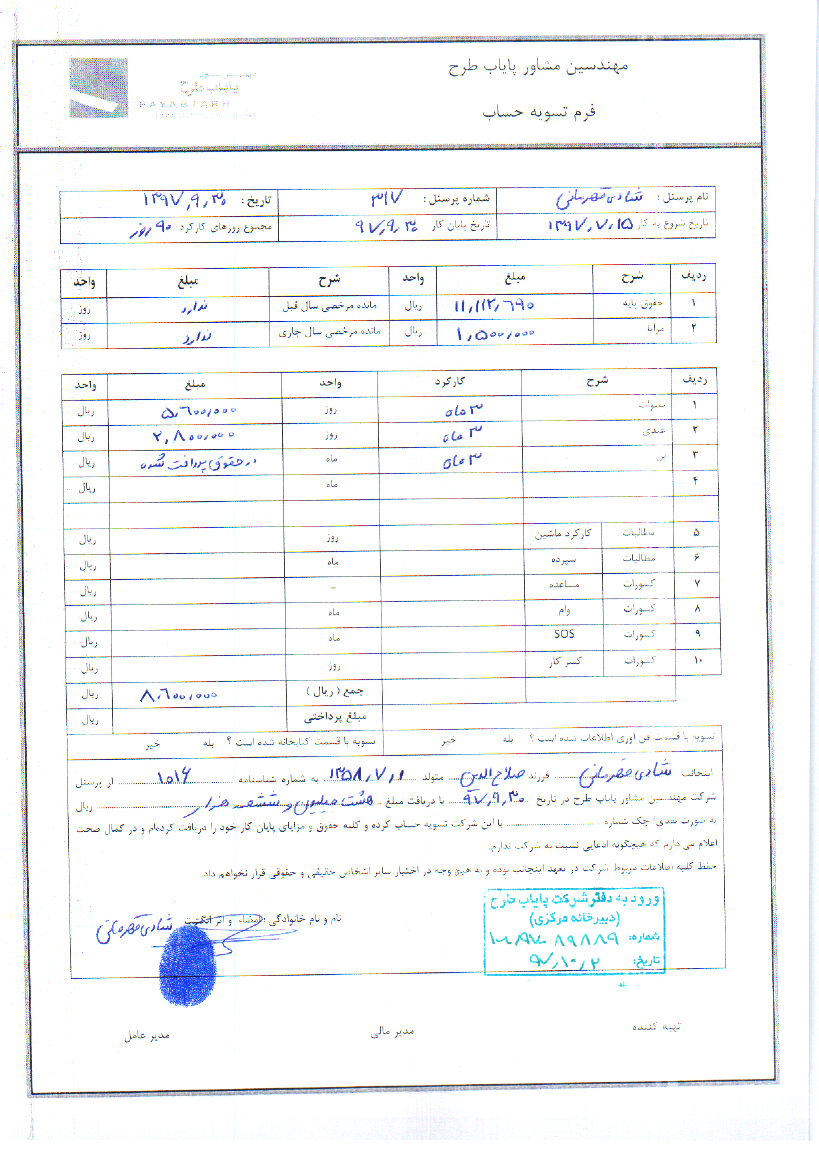 مهندسین مشاور پایاب طرح
پایاب طرح
PAYABTARH
فرم تسویه حساب
نام پرسنل : شادی قهرمانی شماره پرسنل : ۳۱۷ تاریخ : ۱۳۹۷,۹,۳۰
تاریخ شروع به کار ۱۳۹۷,۷,۱۵ تاریخ پایان کار ۹۷,۹,۳۰ مجموع روزهای کارکرد ۹۰ روز
ردیف شرح مبلغ واحد شرح مبلغ واحد
۱ حقوق پایه ۱۱,۱۱۲,۶۹۰ ریال مانده مرخصی سال قبل ندارد روز
۲ مزایا ۱,۵۰۰,۰۰۰ ریال مانده مرخصی سال جاری ندارد روز
ردیف شرح کارکرد واحد مبلغ واحد
۱ سنوات ۳ ماه روز ۵,۶۰۰,۰۰۰ ریال
۲ عیدی ۳ ماه روز ۲,۸۰۰,۰۰۰ ریال
۳ بن ۳ ماه ماه در حقوق پرداخت شده ریال
۴ ماه ریال
۵ مطالبات کارکرد ماشین روز ریال
۶ مطالبات سپرده ماه ریال
۷ کسورات مساعده - ریال
۸ کسورات وام ماه ریال
۹ کسورات SOS ماه ریال
۱۰ کسورات کسر کار روز ریال
جمع ( ریال ) ۸,۶۰۰,۰۰۰ ریال
مبلغ پرداختی ریال
تسویه با قسمت فن آوری اطلاعات شده است ؟ بله خیر تسویه با قسمت کتابخانه شده است ؟ بله خیر
اینجانب شادی قهرمانی فرزند صلاح الدین متولد ۱۳۵۸,۷,۱ به شماره شناسنامه ۱۰۱۶ از پرسنل
شرکت مهندسین مشاور پایاب طرح در تاریخ ۹۷,۹,۳۰ با دریافت مبلغ هشت میلیون و ششصد هزار ریال
به صورت نقدی/ چک شماره با این شرکت تسویه حساب کرده و کلیه حقوق و مزایای پایان کار خود را دریافت کرده‌ام و در کمال صحت
اعلام می دارم که هیچگونه ادعایی نسبت به شرکت ندارم.
حفظ کلیه اطلاعات مربوط شرکت در تعهد اینجانب بوده و به هیچ وجه در اختیار سایر اشخاص حقیقی و حقوقی قرار نخواهم داد.
نام و نام خانوادگی /امضاء و اثر انگشت شادی قهرمانی
ورود به دفتر شرکت پایاب طرح
(دبیرخانه مرکزی)
شماره:
تاریخ: ۹۷,۱۰,۲
تهیه کننده مدیر مالی مدیر عامل